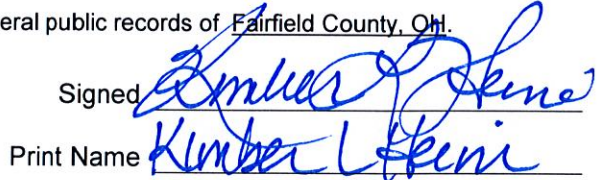 eral public records of Fairfield County, OH.
Signed Kimber L Heine
Print Name Kimber L Heini